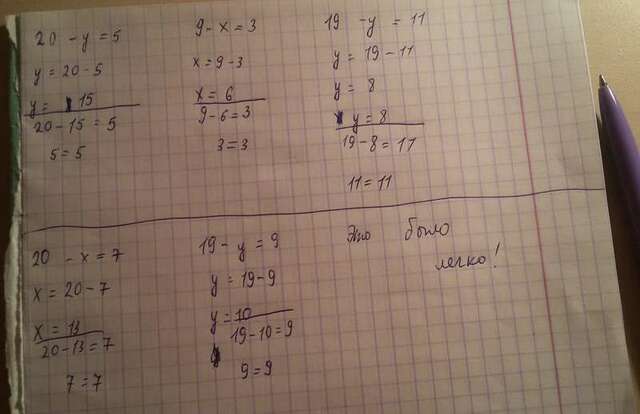 20 - y = 5
y = 20 - 5
y = 15
20 - 15 = 5
5 = 5
9 - x = 3
x = 9 - 3
x = 6
9 - 6 = 3
3 = 3
19 - y = 11
y = 19 - 11
y = 8
y = 8
19 - 8 = 11
11 = 11
20 - x = 7
x = 20 - 7
x = 13
20 - 13 = 7
7 = 7
19 - y = 9
y = 19 - 9
y = 10
19 - 10 = 9
9 = 9
Это было
легко!